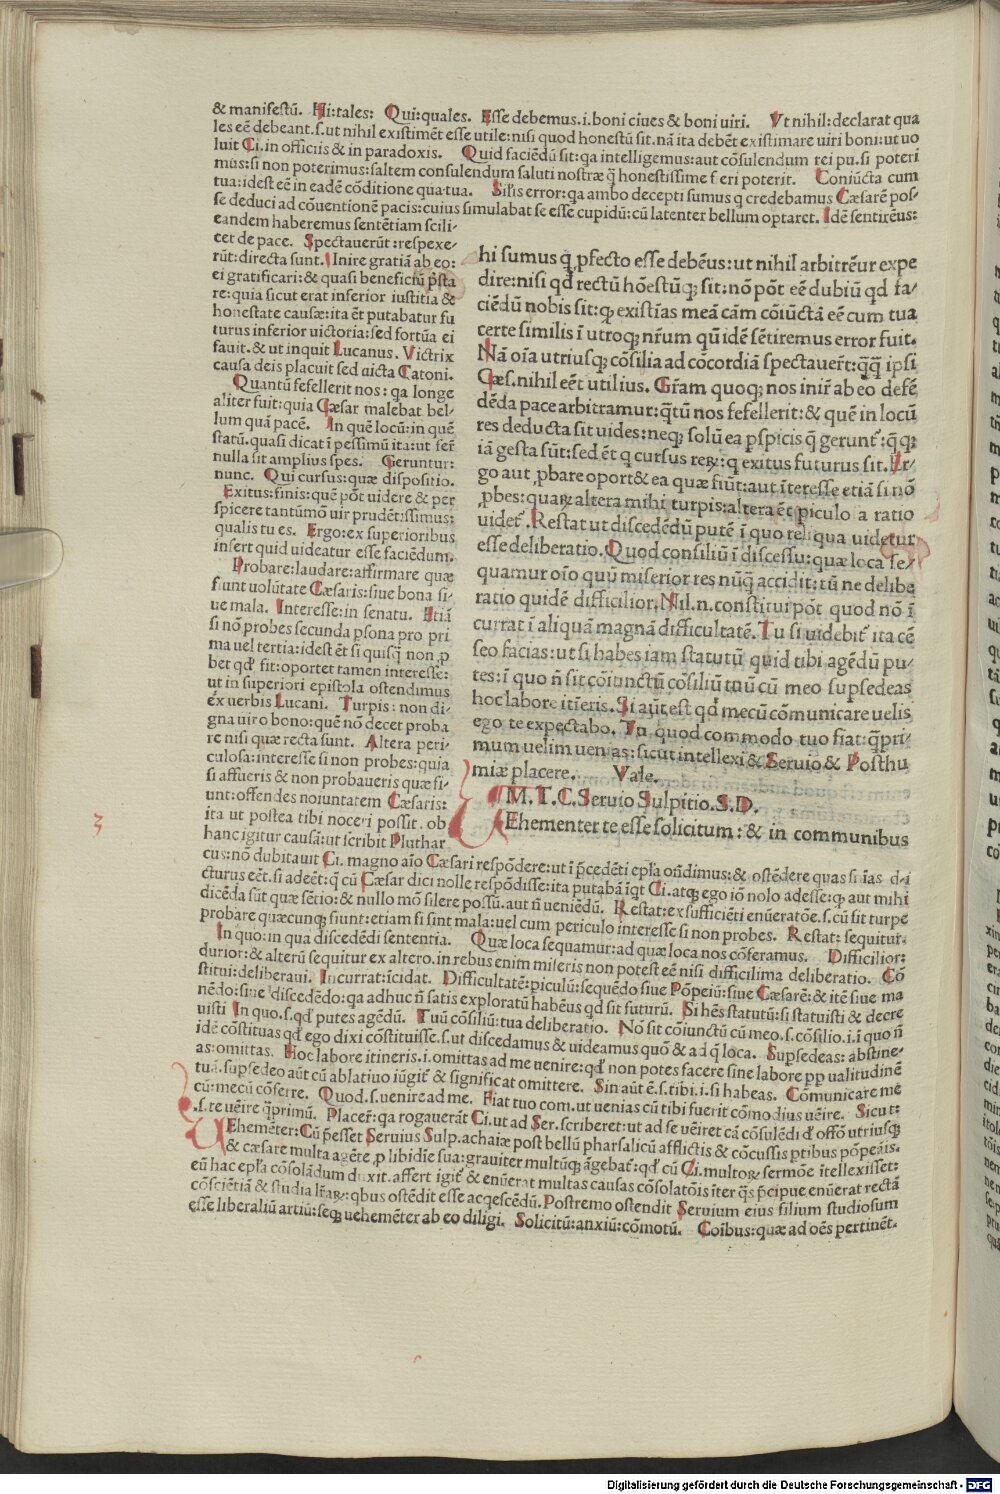 & manifestū. Hi:tales: Qui:quales. Esse debemus.i.boni ciues & boni uiri. Vt nihil:declarat qua
les eē debeant.s.ut nihil existimēt esse utile:nisi quod honestū sit.nā ita debēt existimare uiri boni:ut uo
luit Ci.in officiis & in paradoxis. Quid faciēdū sit:qa intelligemus:aut cōsulendum rei pu.si poteri
mus:si non poterimus:saltem consulendum saluti nostræ q̄ honestissime fieri poterit. Coniūcta cum
tua:idest eē in eadē cōditione qua tua. Silis error:qa ambo decepti sumus q credebamus Cæsarē pos-
se deduci ad cōuentionē pacis:cuius simulabat se esse cupidū:cū latenter bellum optaret. Idē sentirēus:
eandem haberemus sentētiam scili-
cet de pace. Spectauerūt:respexe-
rūt:directa sunt. Inire gratiā ab eo:
ei gratificari:& quasi beneficiū p̄sta
re:quia sicut erat inferior iustitia &
honestate causæ:ita ēt putabatur fu
turus inferior uictoria:sed fortūa ei
fauit.& ut inquit Lucanus. Victrix
causa deis placuit sed uicta Catoni.
Quantū fefellerit nos:qa longe
aliter fuit:quia Cæsar malebat bel-
lum quā pacē. In quē locū:in quē
statū.quasi dicat ī pessimū ita:ut ferē
nulla sit amplius spes. Geruntur:
nunc. Qui cursus:quæ dispositio.
Exitus:finis:quē pōt uidere & per
spicere tantūmō uir prudētissimus:
qualis tu es. Ergo:ex superioribus
infert quid uideatur esse faciēdum.
Probare:laudare:affirmare quæ
fiunt uolūtate Cæsaris:siue bona si-
ue mala. Interesse:in senatu. Etiā
si nō probes secunda psona pro pri
ma uel tertia:idest ēt si quisq̄ non p
bet qd' fit:oportet tamen interesse:
ut in superiori epistola ostendimus
ex uerbis Lucani. Turpis:non di-
gna uiro bono:quē nō decet proba
re nisi quæ recta sunt. Altera peri-
culosa:interesse si non probes:quia
si affueris & non probaueris quæ fi-
unt:offendes uoluntatem Cæsaris:
ita ut postea tibi noceri possit.ob
hanc igitur causā:ut scribit Pluthar
hi sumus q̄ pfecto esse debēus:ut nihil arbitrēur expe
dire:nisi qd' rectū hōestūq; sit:nō pōt eē dubiū qd fa-
ciēdū nobis sit:q; existīas meā cām cōiūctā eē cum tua
certe similis ī utroq; nr̄um qū idē sētiremus error fuit.
Nā oīa utriusq; cōsilia ad cōcordiā spectauer̄t:q̄q̄ ipsi
Cæs.nihil eēt utilius. Gr̄am quoq; nos inir̄ ab eo defē
dēda pace arbitramur:q̄tū nos fefellerit:& quē in locū
res deducta sit uides:neq; solū ea pspicis q̄ gerunt':q̄q;
iā gesta sūt:sed ēt q cursus reꝝ:q exitus futurus sit.Er-
go aut pbare oport& ea quæ fiūt:aut īteresse etiā si nō
pbes:quaꝝ altera mihi turpis:altera ēt piculo a ratio
uidet'.Restat ut discedēdū putē ī quo reliqua uidetur
esse deliberatio.Quod consiliū ī discessu:quæ loca se-
quamur oīo quū miserior res nūq̄ accidit:tū ne delibe
ratio quidē difficilior.Nil.n.constitui pōt quod nō ī
currat ī aliquā magnā difficultatē.Tu si uidebit' ita cē
seo facias:ut si habes iam statutū quid tibi agēdū pu-
tes:ī quo n̄ sit cōiunctū cōsiliū tuū cū meo supsedeas
hoc labore itīeris.Si aūt est qd' mecū cōmunicare uelis
ego te expectabo. Tu quod commodo tuo fiat:q̄pri-
mum uelim uenias:sicut intellexi & Seruio & Posthu
miæ placere. Vale.
M.T.C.Seruio Sulpitio.S.D.
VEhementer te esse solicitum:& in communibus
cus:nō dubitauit Ci. magno aīo Cæsari respōdere:ut ī p̄cedēti epl'a ondimus:& ostēdere quas sn̄ias di
cturus eēt.si adeēt:q̄ cū Cæsar dici nolle respōdisse:ita putabā īqt Ci.atq; ego iō nolo adesse:q; aut mihi
dicēda sūt quæ sētio:& nullo mō silere possū.aut n̄ ueniēdū. Restat:ex sufficiēti enūeratōe.s.cū sit turpe
probare quæcunq; fiunt:etiam si sint mala:uel cum periculo interesse si non probes. Restat: sequitur.
In quo:in qua discedēdi sententia. Quæ loca sequamur:ad quæ loca nos cōferamus. Difficilior:
durior:& alterū sequitur ex altero.in rebus enim miseris non potest eē nisi difficilima deliberatio. Cō
stitui:deliberaui. Incurrat:īcidat. Difficultatē:piculū:sequēdo siue Pōpeiū:siue Cæsarē:& itē siue ma
nēdo:siue discedēdo:qa adhuc n̄ satis exploratū habēus qd sit futurū. Si hēs statutū:si statuisti & decre
uisti In quo.s.qd' putes agēdū. Tuū cōsiliū:tua deliberatio. Nō sit cōiunctū cū meo.s.cōsilio.i.ī quo n̄
idē cōstituas qd' ego dixi cōstituisse.s.ut discedamus & uideamus quo & ad q̄ loca. Supsedeas: abstine-
as:omittas. Hoc labore itineris.i.omittas ad me uenire:qd' non potes facere sine labore pp ualitudinē
tuā.supsedeo aūt cū ablatiuo iūgit' & significat omittere. Sin aūt ē.s.tibi.i.si habeas. Cōmunicare me
cū:mecū cōferre. Quod.s.uenire ad me. Fiat tuo com.ut uenias cū tibi fuerit cōmodius uēire. Sicut:
.s.te uēire q̄primū. Placer̄:qa rogauerāt Ci.ut ad Ser.scriberet:ut ad se uēiret cā cōsulēdi d' offō utriusq;
VEhemēter:Cū p̄esset Seruius Sulp.achaiæ post bellū pharsalicū afflictis & cōcussis ptibus pōpeāis.
& cæsare multa agēte p libidīe sua:grauiter multūq; āgebat':qd' cū Ci.multoꝝ sermōe ītellexisset:
eū hac epl'a cōsolādum duxit.affert igit' & enūerat multas causas cōsolatōis īter q̄s p̄cipue enūerat rectā
cōsciētiā & studia lr̄aꝝ:qbus ostēdit esse acqescēdū.Postremo ostendit Seruium eius filium studiosum
esse liberaliū artiū:seq; uehemēter ab eo diligi. Solicitū:anxiū:cōmotū. Cōibus:quæ ad oēs pertinēt.
Digitalisierung gefördert durch die Deutsche Forschungsgemeinschaft - DFG